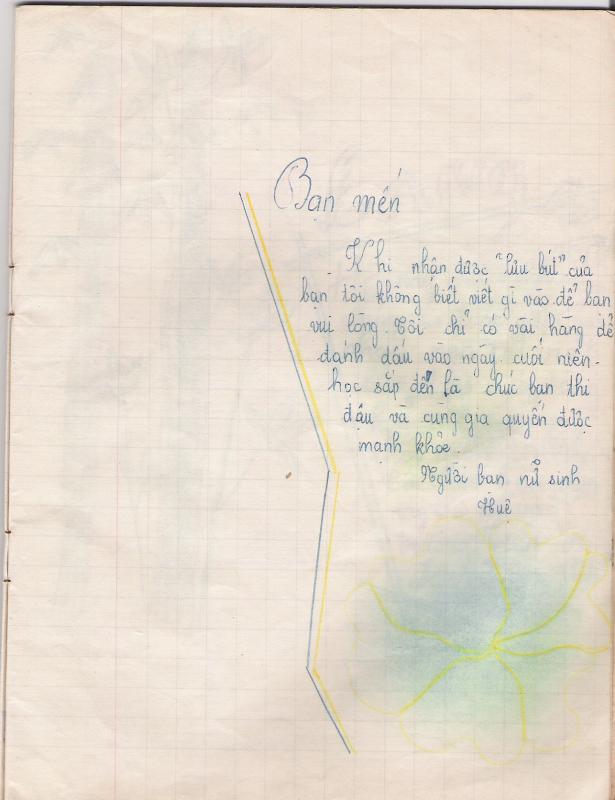 Bạn mến
Khi nhận được "lưu bút" của
bạn tôi không biết viết gì vào để bạn
vui lòng. Tôi chỉ có vài hàng để
đánh dấu vào ngày cuối niên
học sắp đến là chúc bạn thi
đậu và cùng gia quyến được
mạnh khỏe.
Người bạn nữ sinh
Huê